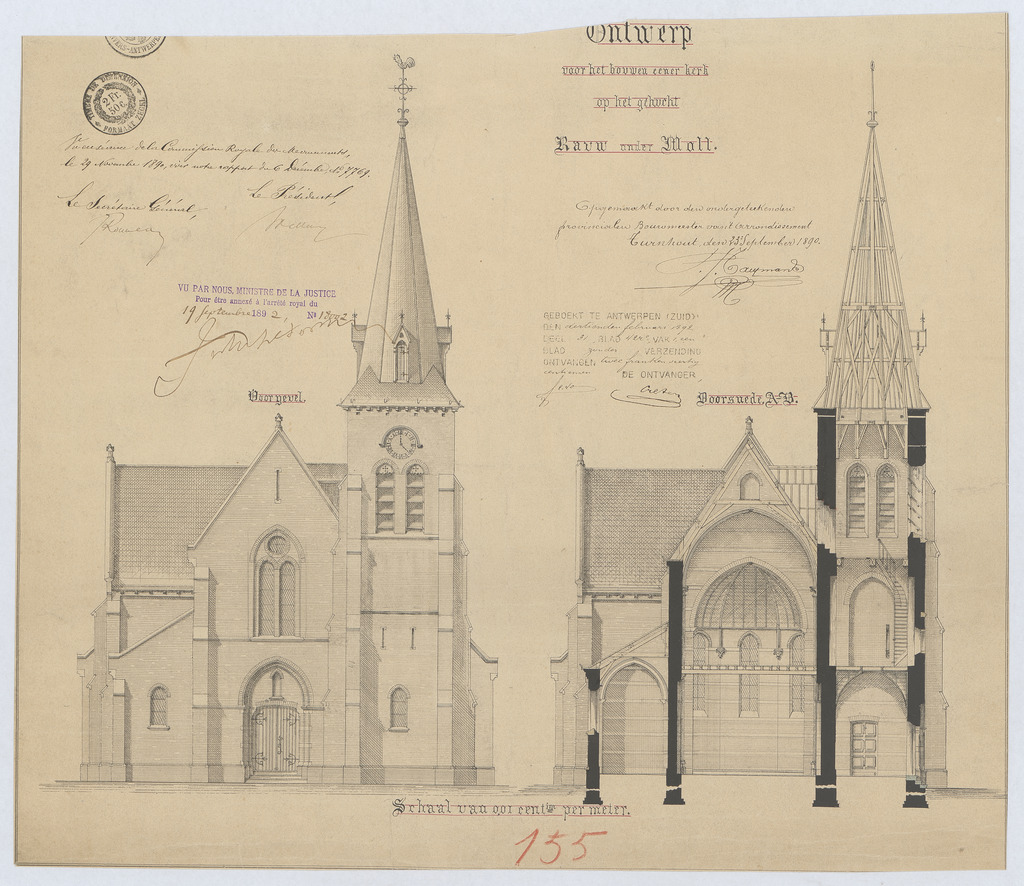 TIMBRE DE DIMENSION
2 Fr.
50 c.
Ontwerp
voor het bouwen eener kerk
op het gehucht
Rauw onder Moll.
Vu en séance de la Commission Royale des Monuments,
le 29 Novembre 1890, voir notre rapport du 6 Décembre, No 7769.
Le Secrétaire Général,
Le Président,
Opgemaakt door den ondergeteekenden
provincialen Bouwmeester van 't Arrondissement
Turnhout den 25 September 1890.
VU PAR NOUS, MINISTRE DE LA JUSTICE
Pour être annexé à l'arrêté royal du
19 Septembre 1892, No
GEBOEKT TE ANTWERPEN (ZUID)
DEN februari
DEEL BLAD VAK een
BLAD zonder VERZENDING
ONTVANGEN twee franken veertig
centiemen DE ONTVANGER
Voorgevel.
Doorsnede, A-B.
Schaal van 0,01 centim per meter.
155